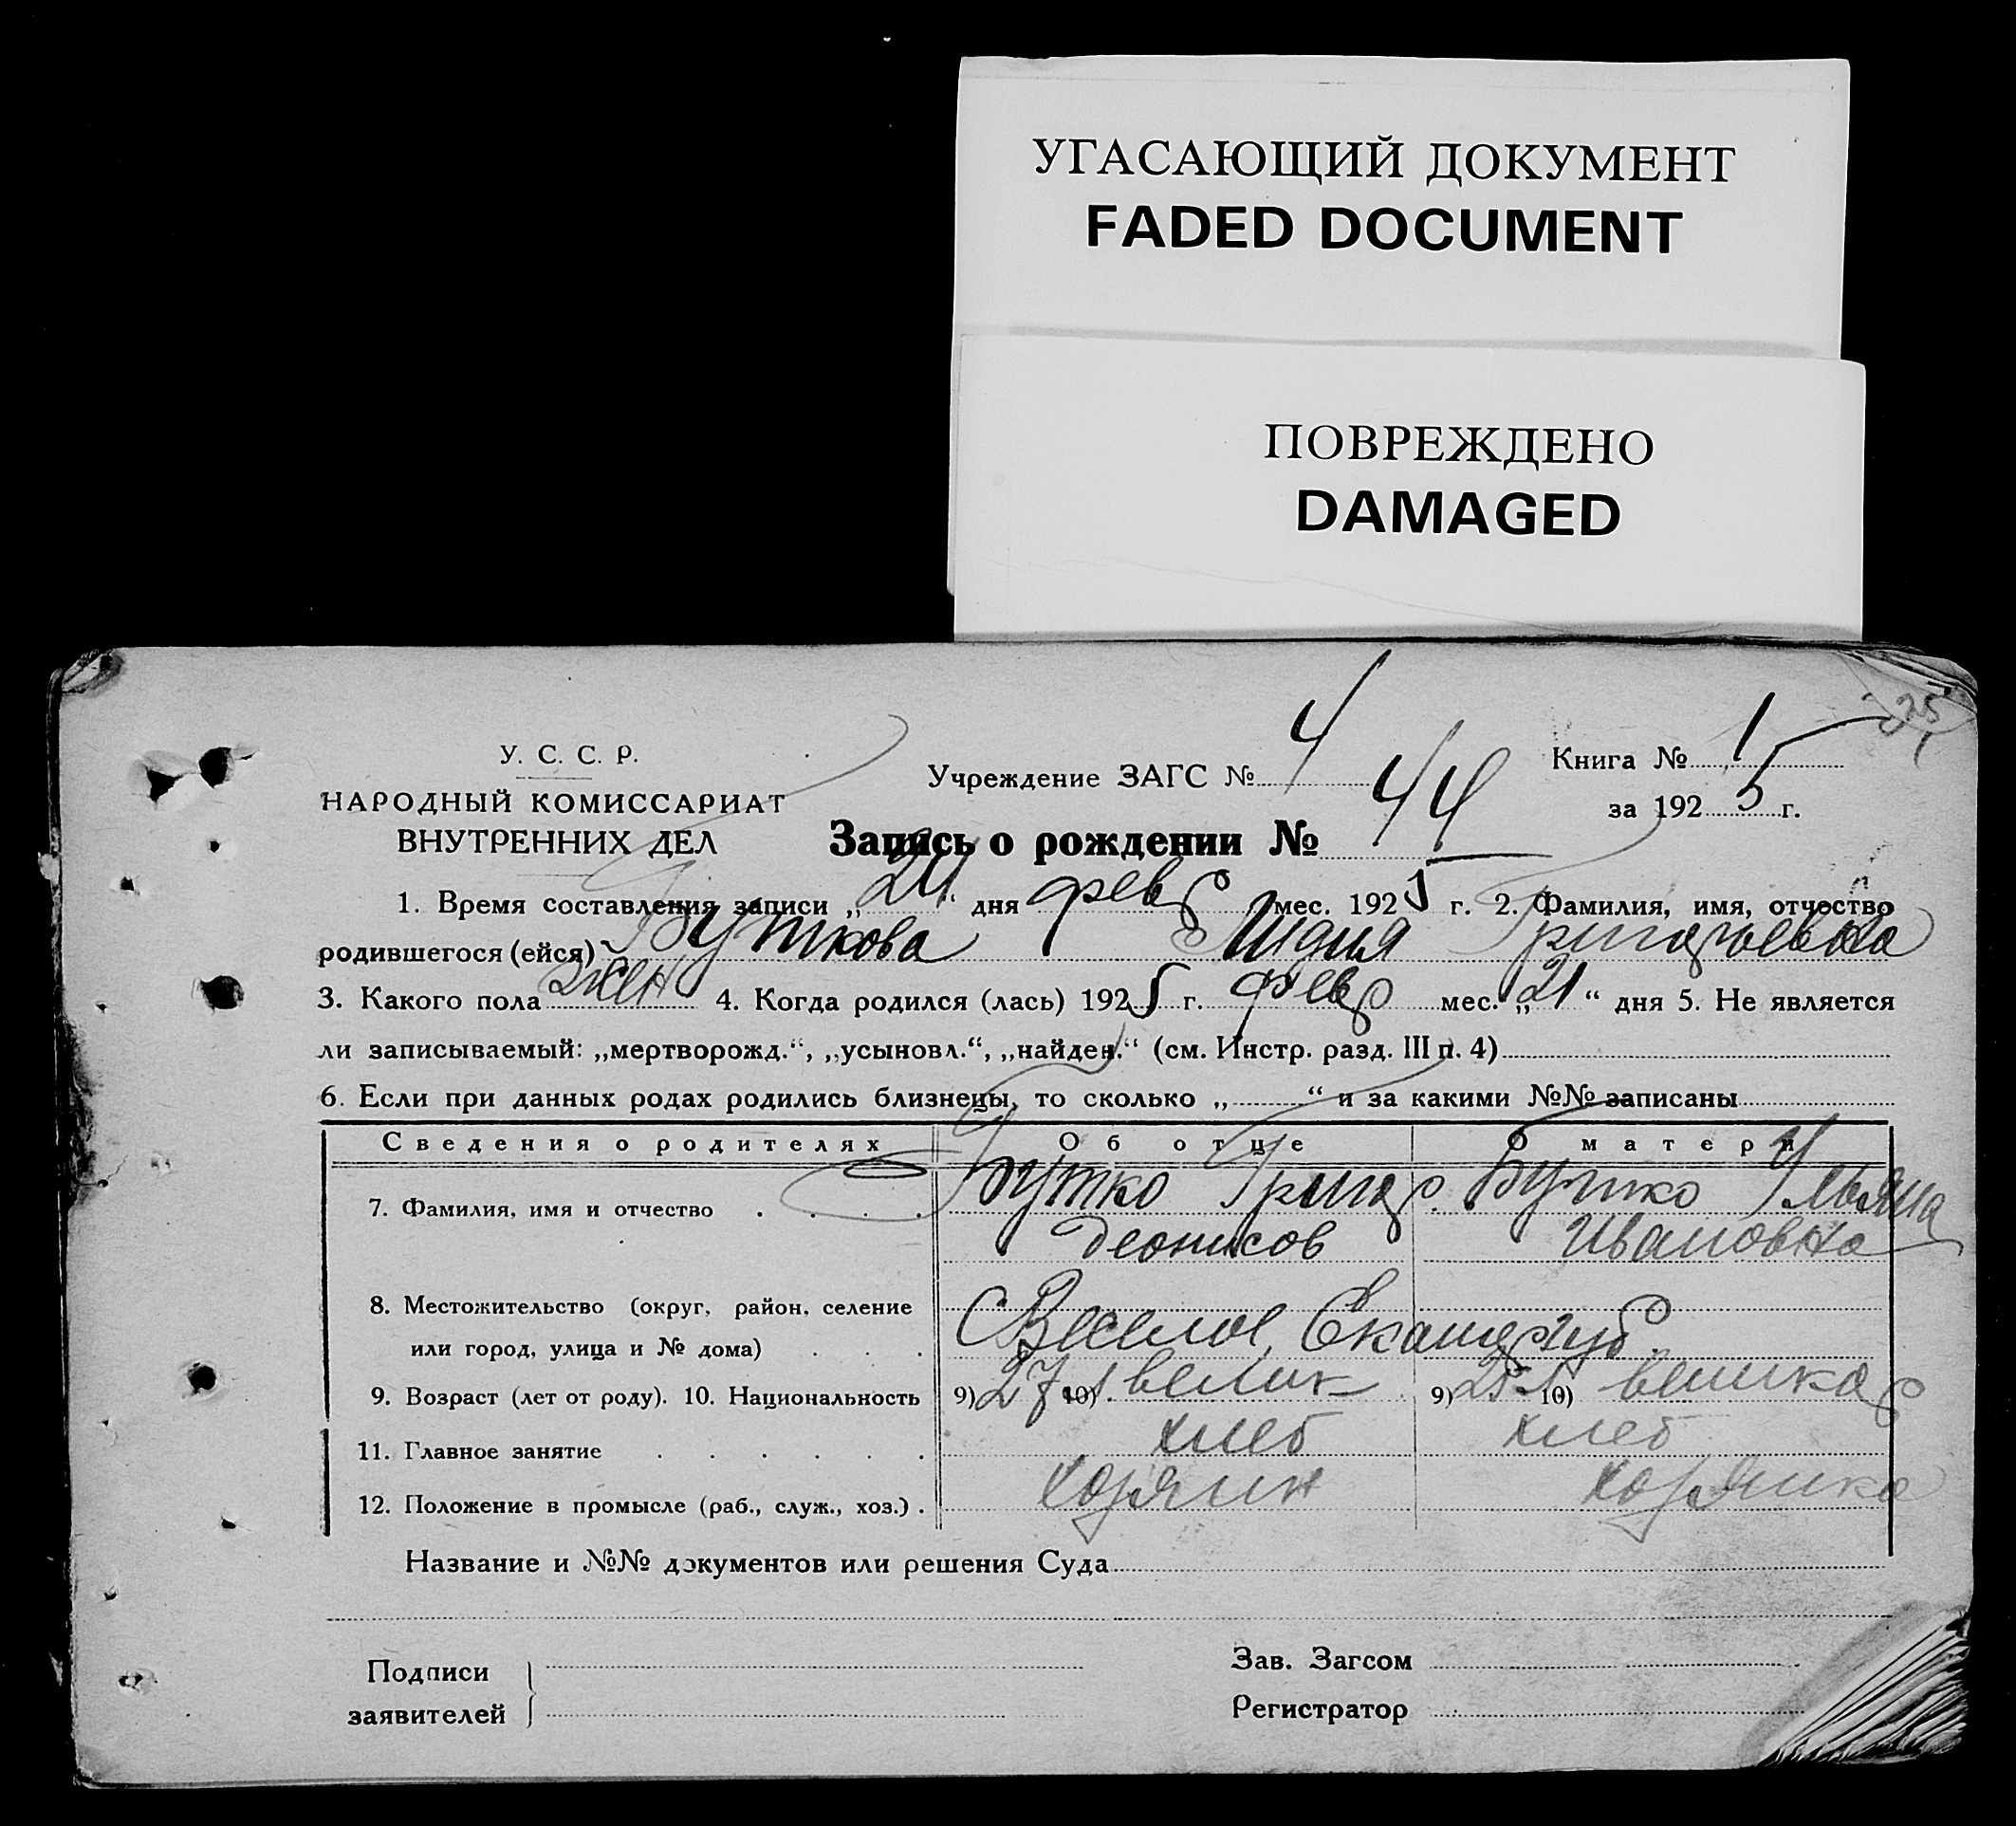 УГАСАЮЩИЙ ДОКУМЕНТ
FADED DOCUMENT
ПОВРЕЖДЕНО
DAMAGED
25
У. С. С. Р.
НАРОДНЫЙ КОМИССАРИАТ
ВНУТРЕННИХ ДЕЛ
Учреждение ЗАГС № 4
Книга № 1
за 1925 г.
Запись о рождении № 44
1. Время составления записи „24“ дня февр мес. 1925 г. 2. Фамилия, имя, отчество
родившегося (ейся) Буткова Лидия Григорьевна
3. Какого пола жен 4. Когда родился (лась) 1925 г. февр мес. „21“ дня 5. Не является
ли записываемый: „мертворожд.“, „усыновл.“, „найден.“ (см. Инстр. разд. III п. 4)
6. Если при данных родах родились близнецы, то сколько „ “ и за какими №№ записаны
Сведения о родителях Об отце О матери
7. Фамилия, имя и отчество . . . . Бутко Григор. Бутко Ульяна
Деонисов Ивановна
8. Местожительство (округ, район, селение
или город, улица и № дома) . . . С Веселое, Екатер губ.
9. Возраст (лет от роду). 10. Национальность 9) 27 10) велик 9) 25 10) великор
11. Главное занятие . . . . . . хлеб хлеб
12. Положение в промысле (раб., служ., хоз.) . хозяин хозяйка
Название и №№ документов или решения Суда
Подписи
заявителей
Зав. Загсом
Регистратор